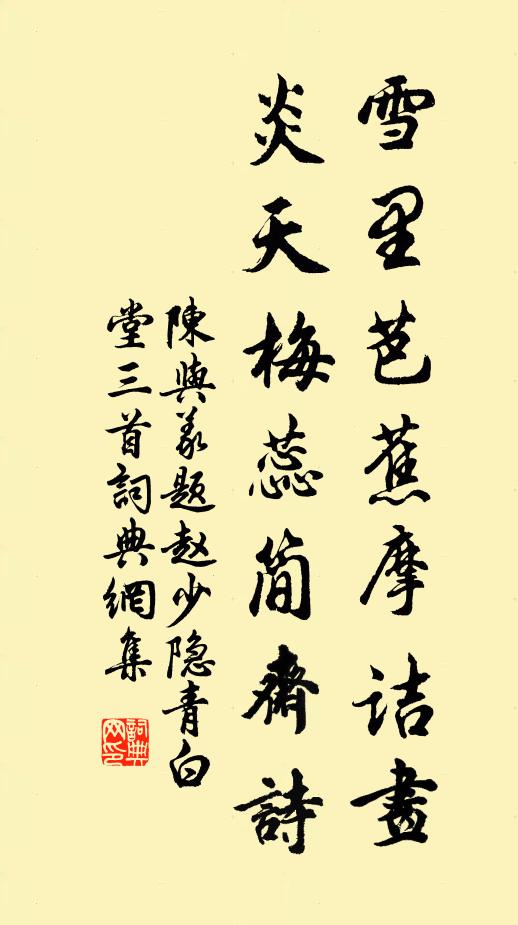 雪里芭蕉摩诘畫
炎天梅蕊简齋詩
陳與義题赵少隐青白
堂三首詞典網集
詞典網印